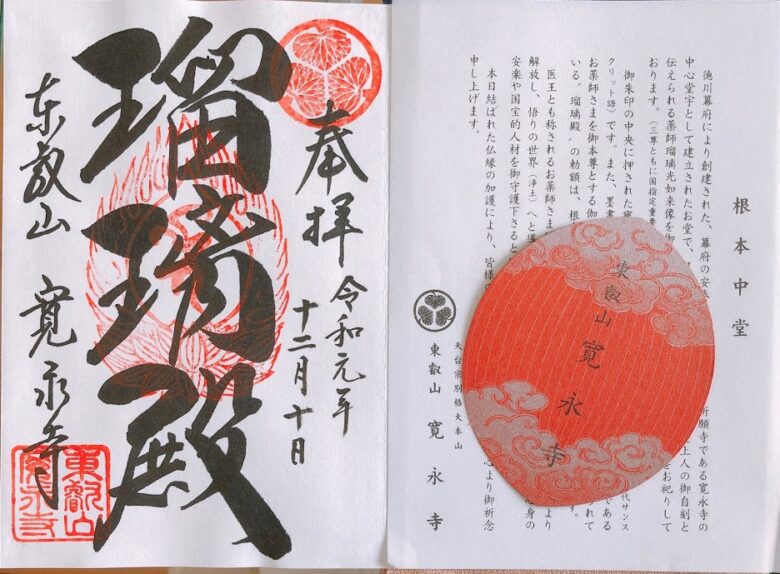 根本中堂
徳川幕府により創建された、幕府の安 祈願寺である寛永寺の
中心堂宇として建立されたお堂で、 上人の御自刻と
伝えられる薬師瑠璃光如来像を御 をお祀りして
おります。(三尊ともに国指定重要
御朱印の中央に押された 代サンス
クリット語)です。また、墨書 である
お薬師さまを御本尊とする伽 られて
いる〝瑠璃殿〟の勅額は、根 す。
医王とも称されるお薬師さま より
解放し、悟りの世界(浄土)へと 身の
安楽や国宝的人材を御守護下さると
本日結ばれた仏縁の加護により、皆様の 心より御祈念
申し上げます。
天台宗別格大本山
東叡山 寛永寺
東叡山寛永寺
奉拝
令和元年
十二月十日
瑠璃殿
东叡山 寛永寺
東叡山
寛永寺